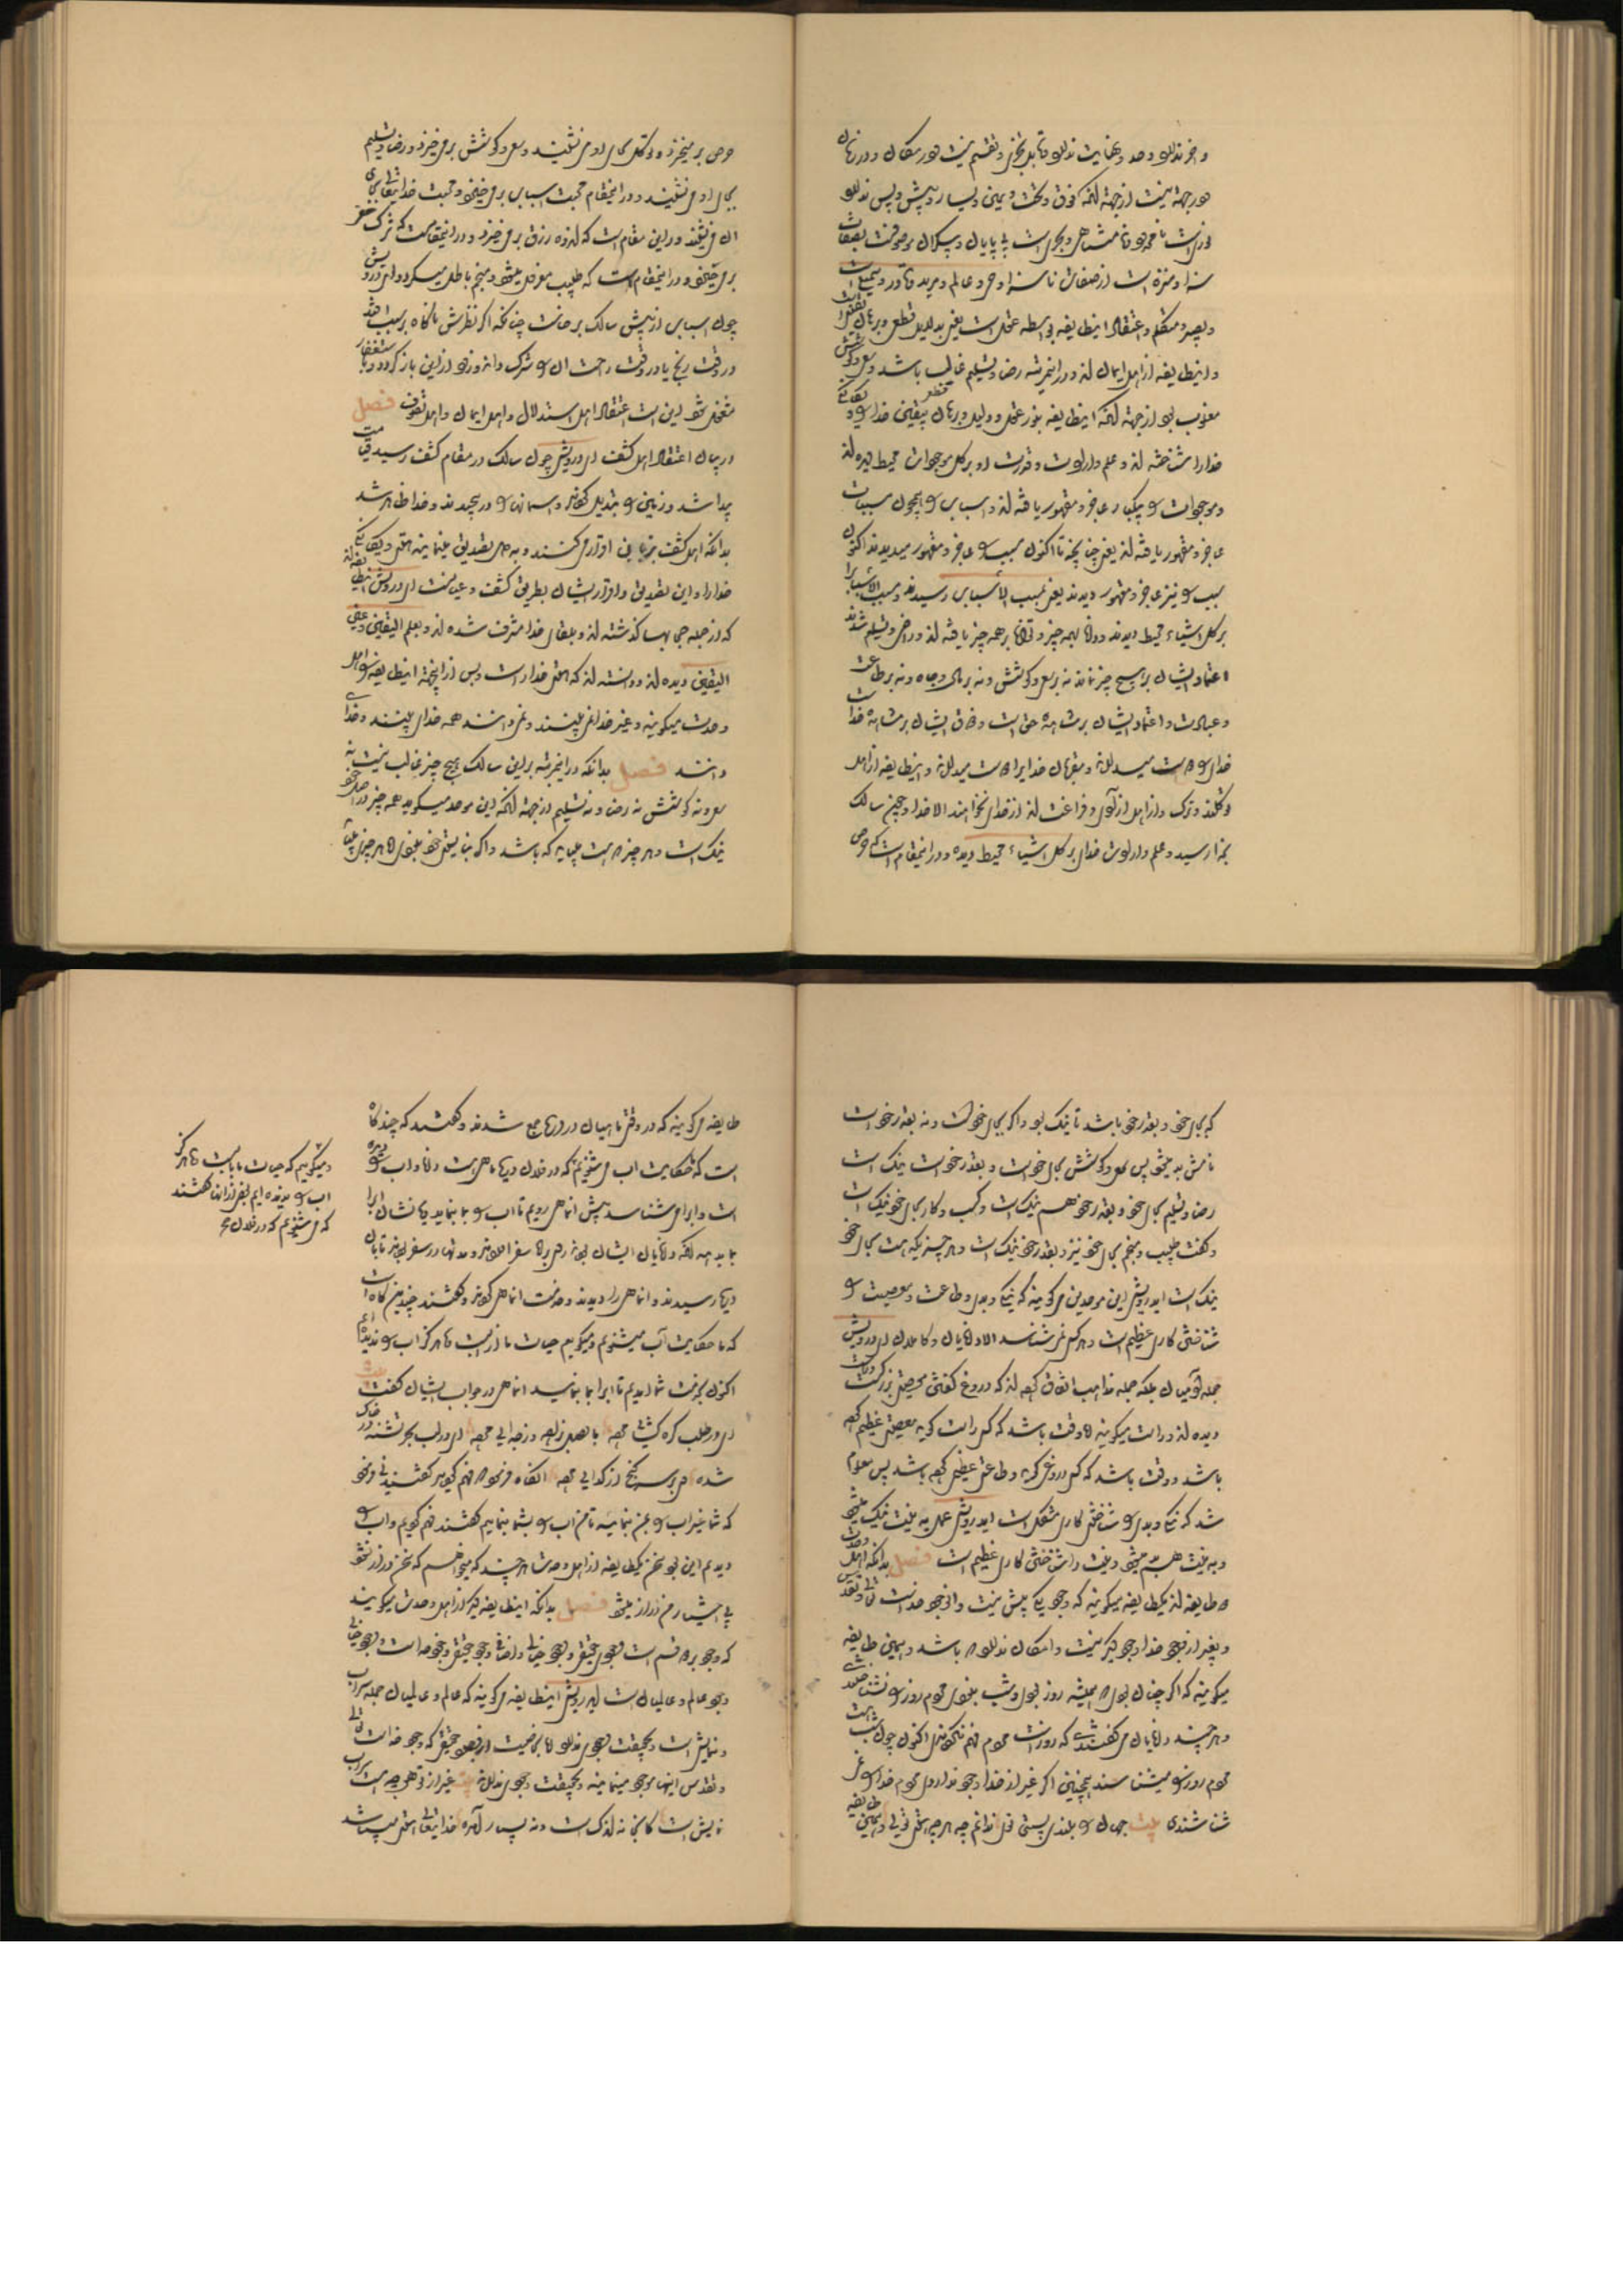 و جز ندارد و حد و نهایت ندارد و قابل تجزی و تقسیم نیست در مکان و در زمان
و در جهة نیست از جهة آنکه فوق و تحت و یمین و یسار و پیش و پس ندارد
نوریست نامحدود و نامتناهی و بحریست بی پایان و بیکران موصوفست بصفات
سزا و منزه است از صفات ناسزا و حی و عالم و مرید و قادر و سمیع است
و بصیر و متکلم و اعتقاد اینطایفه بواسطه عقل است یعنی بدلایل قطعی و برهان
و اینطایفه از اهل ایمان اند و در این مرتبه رضا و تسلیم غالب باشد و سعی و کوشش
مغلوب بود از جهة آنکه اینطایفه بنور عقل و دلیل و برهان یقینی خدا را
خدا را شناخته اند و علم و ارادت و قدرت او بر کل موجودات محیط دیده اند
و موجودات را بیکبار عاجز و مقهور یافته اند و اسباب را همچون مسببات
عاجز و مقهور یافته اند یعنی چنانچه تا اکنون مسبب را عاجز و مقهور میدیدند اکنون
سبب را نیز عاجز و مقهور دیدند یعنی بمسبب الاسباب رسیدند و مسبب الاسباب را
بر کل اشیاء محیط دیدند و دانا بهمه چیز و توانا بر همه چیز یافته اند و راضی و تسلیم شدند
اعتماد ایشان بر هیچ چیز نماند نه بر سعی و کوشش و نه بر مال و جاه و نه بر طاعت
و عبادت و اعتماد ایشان بر مشاهده حق است و ذوق ایشان بر مشاهده خداست
خدای را دوست میدارند و مقربان خدا را دوست میدارند و اینطایفه از اهل
توکلند و ترک و از اهل آزادی و فراغت اند از خدای نخواهند الا خدا و چون سالک
بخدا رسید و علم و ارادت خدای بر کل اشیاء محیط دیده و در اینمقام است که حرص
حرص بر میخیزد و توکل بجای او می نشیند و سعی و کوشش بر می خیزد و رضا و تسلیم
بجای او می نشیند و در اینمقام محبت اسباب بر می خیزد و محبت خدایتعالی بجای
آن می نشیند و در این مقام است که اندوه رزق بر می خیزد و در اینمقامست که شرک خفی
بر می خیزد و در اینمقام است که طبیب معزول میشود و منجم باطل میگردد ای درویش
چون اسباب از پیش سالک برخاست چنانکه اگر نظرش ناگاه بر سبب افتد
در وقت رنج یا در وقت راحت آن را شرک داند و زود از این باز گردد و باستغفار
مشغول شود این است اعتقاد اهل استدلال و اهل ایمان و اهل تصوف فصل
در بیان اعتقاد اهل کشف ای درویش چون سالک در مقام کشف رسید قیامت
پیدا شد و زمین را تبدیل کردند و آسمانها را در پیچیدند و خدا ظاهر شد
بدانکه اهل کشف بزبان اقرار می کنند و بدل تصدیق مینمایند هستی و یگانگی
خدا را و این تصدیق و اقرار ایشان بطریق کشف و عیانست ای درویش اینطایفه اند
که از جمله حجابها گذشته اند و بلقای خدا مشرف شده اند و بعلم الیقین و عین
الیقین دیده اند و دانسته اند که هستی خدا راست و بس از اینجهة اینطایفه را اهل
وحدت میگویند و غیر خدا نمی بینند و نمی دانند همه خدای بینند و خدا
دانند فصل بدانکه در این مرتبه بر این سالک هیچ چیز غالب نیست نه
سعی و نه کوشش نه رضا و نه تسلیم از جهة آنکه این موحد میگوید همه چیز در اصل خود
نیک است و هر چیز هست میباید که باشد و اگر نبایستی خود نبودی اما هر چیزی میباید
که بجای خود و بقدر خود باشد تا نیک بود و اگر بجای خود نیست و نه بقدر خود است
نامش بد میشود پس سعی و کوشش بجای خود است و بقدر خود است نیک است
رضا و تسلیم بجای خود و بقدر خود هم نیک است و کسب و کار بجای خود نیک است
و گفت طبیب و منجم بجای خود نیز و بقدر خود نیک است و هر چیزیکه هست بجای خود
نیک است ای درویش این موحدین میگویند که نیک و بد و طاعت و معصیت را
شناختن کاری عظیم است و هر کس نمی شناسد الا دانایان و کاملان ای درویش
جمله آدمیان بلکه جمله مذاهب اتفاق کرده اند که دروغ گفتن معصیتی بزرگست
دیده اند و راست میگویند اما وقت باشد که کسی راست گوید معصیتی عظیم کرده
باشد و وقت باشد که کسی دروغ گوید و طاعتی عظیم کرده باشد پس معلوم
شد که نیک و بد را شناختن کاری مشکل است ای درویش عمل بد به نیت نیک میشود
و به نیت هم بد میشود و نیت را شناختن کاری عظیم است فصل بدانکه اهل وحدت
دو طایفه اند یکطایفه میگویند که وجود یکی بیش نیست و آن وجود خداست تعالی و تقدس
و بغیر از وجود خدا وجود دیگر نیست و امکان ندارد که باشد و همین طایفه
میگویند که اگر چنان بودی که همیشه روز بودی و شب نبودی مردم روز را نشناختندی
و هر چند دانایان می گفتندی که روز است مردم فهم نکردندی اکنون چون شب هست
مردم روز را میشناسند همچنین اگر غیر از خدا وجود ندارد مردم خدا را
شناختندی بیت جهان را بلندی و پستی توئی ندانم چه هر چه هستی توئی و همین طایفه
طایفه میگویند که در وقتی ماهیان در دریا جمع شدند و گفتند که چند گاه
است که ما حکایت آب می شنویم که در فلان دریا ماهی است دانا و آب را دیده
است و آب را می شناسد پیش آن ماهی رویم تا آب را بما بنماید یا نشان آب را
بما بدهد آنکه دانایان ایشان بودند راهی براه سفر آوردند و مدتها در سفر بودند تا بآن
دریا رسیدند و آن ماهی را دیدند و خدمت آن ماهی کردند و گفتند چندین گاه است
که ما حکایت آب میشنویم و میگوییم حیات ما از آبست و ما هرگز آب را ندیده ایم
اکنون بخدمت شما آمدیم تا آب را بما بنمایید آن ماهی در جواب ایشان گفت بیت
ای در طلب گره گشایی مرده با وصل بزاده و ز جدایی مرده ای در لب بحر تشنه در خاک
شده ای بر سر گنج از گدایی مرده آنگاه فرمود که فهم کردید گفتند نی فرمود
که شما غیر آب را بمن بنمایید تا من آب را بشما بنمایم گفتند فهم کردیم و آب را
دیدیم این بود سخن یکطایفه از اهل وحدت هر چند که میخواهم که سخن دراز نشود
بی اختیار من دراز میشود فصل بدانکه اینطایفه دیگر از اهل وحدت میگویند
که وجود بر دو قسم است وجود حقیقی و وجود خیالی وجود حقیقی وجود خداست و وجود خیالی
وجود عالم و عالمیان است ای درویش اینطایفه میگویند که عالم و عالمیان جمله سراب
و نمایش است و بحقیقت وجود ندارد اما بخاصیت وجود حقیقی که وجود خداست تعالی
و تقدس اینها موجود مینمایند و بحقیقت وجود ندارند بیت غیر از تو هر چه هست سراب
نمایش است کانجا نه اندک است و نه بسیار آمده خدایتعالی هستی میباشد
و میگوییم که حیات ما بآبست و ما هرگز
آب را ندیده ایم بعضی از آنها گفتند
که می شنویم که در فلان بحر